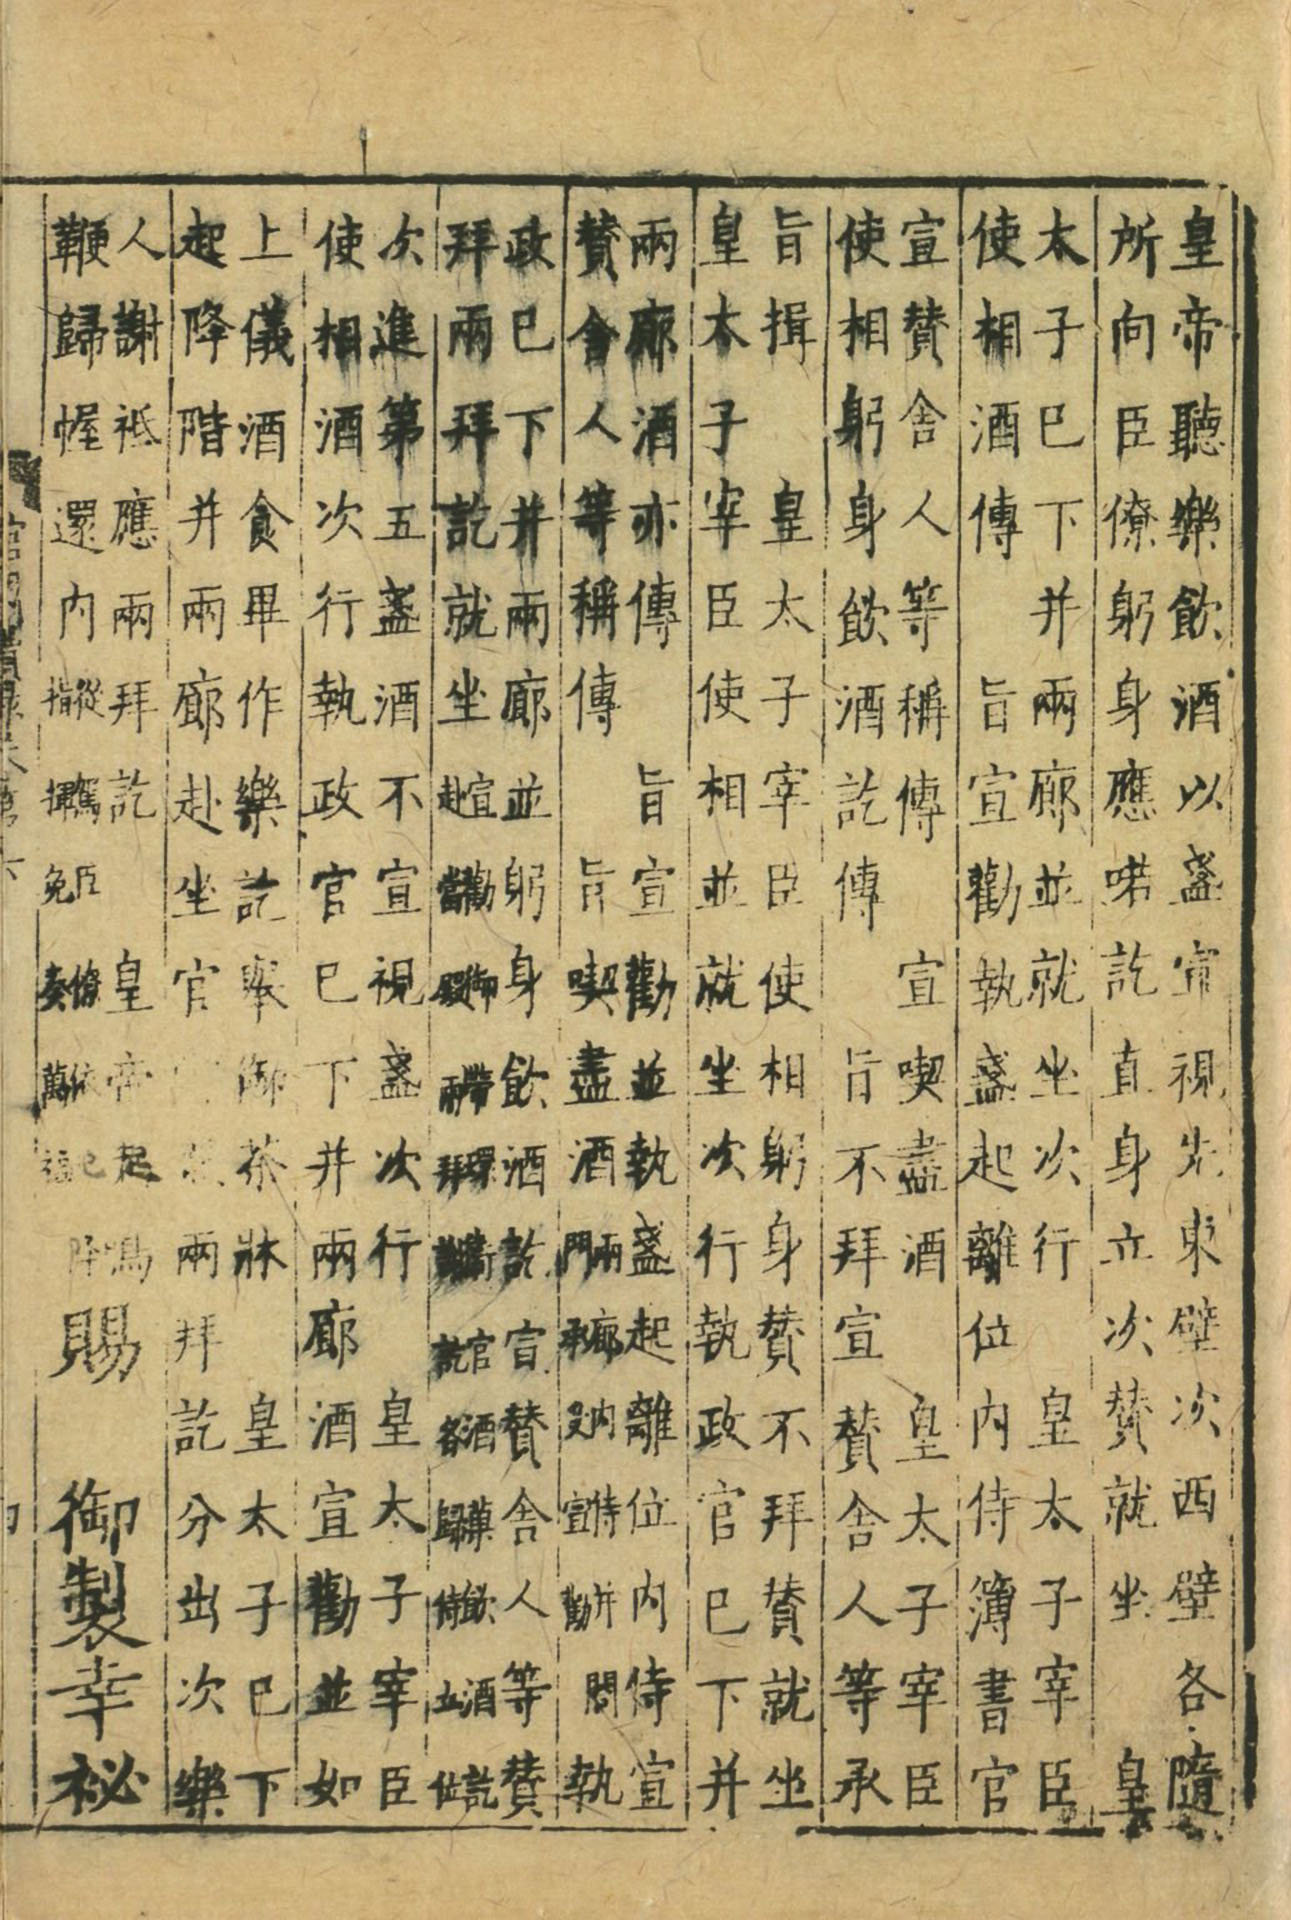 皇帝聽樂飲酒以盞宣視先東壁次西壁各隨
所向臣僚躬身應喏訖直身立次贊就坐　皇
太子巳下并兩廊並就坐次行　皇太子宰臣
使相酒傳　旨宣勸執盞起離位內侍簿書官
宣贊舍人等稱傳　宣喫盡酒　皇太子宰臣
使相躬身飲酒訖傳　旨不拜宣贊舍人等承
旨揖　皇太子宰臣使相躬身贊不拜贊就坐
皇太子宰臣使相並就坐次行執政官巳下并
兩廊酒亦傳　旨宣勸並執盞起離位內侍宣
贊舍人等稱傳　旨喫盡酒兩廊內侍并閤門承受宣勸執
政巳下并兩廊並躬身飲酒訖宣贊舍人等贊
拜兩拜訖就坐宣勸御帶環衛官酒藥飲酒訖赴當殿兩拜訖各歸侍立位
次進第五盞酒不宣視盞次行　皇太子宰臣
使相酒次行執政官巳下并兩廊酒宣勸並如
上儀酒食畢作樂訖舉御茶牀　皇太子巳下
起降階并兩廊赴坐官兩拜訖分出次樂
人謝祗應兩拜訖　皇帝起鳴
鞭歸幄還內從駕臣僚依巳降指揮免奏萬福
賜　御製幸祕